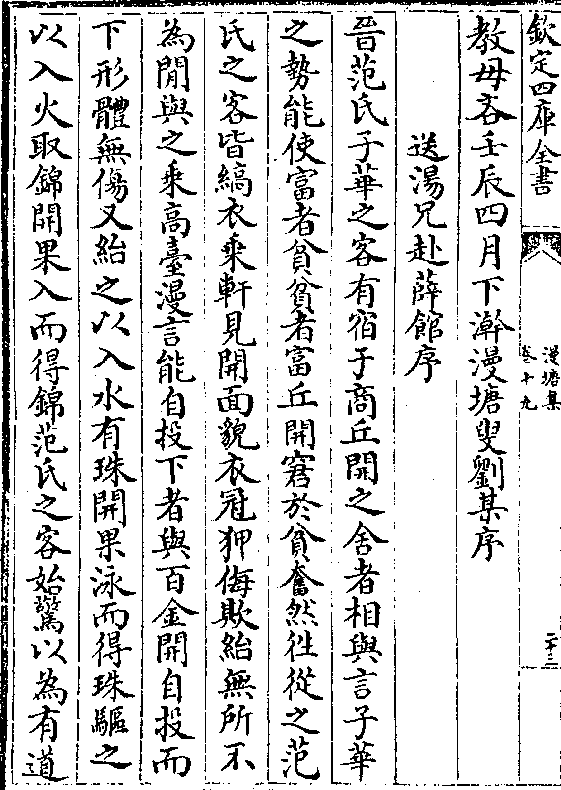 欽定四庫全書
漫塘集
卷十九
二十三
教毋吝壬辰四月下澣漫塘叟劉某序
送湯兄赴薛館序
晉范氏子華之客有宿于商丘開之舍者相與言子華
之勢能使富者貧貧者富丘開窘於貧奮然徃從之范
氏之客皆縞衣乘軒見開面貌衣冠狎侮欺紿無所不
為閒與之乘高臺漫言能自投下者與百金開自投而
下形體無傷又紿之以入水有珠開果泳而得珠驅之
以入火取錦開果入而得錦范氏之客始驚以為有道